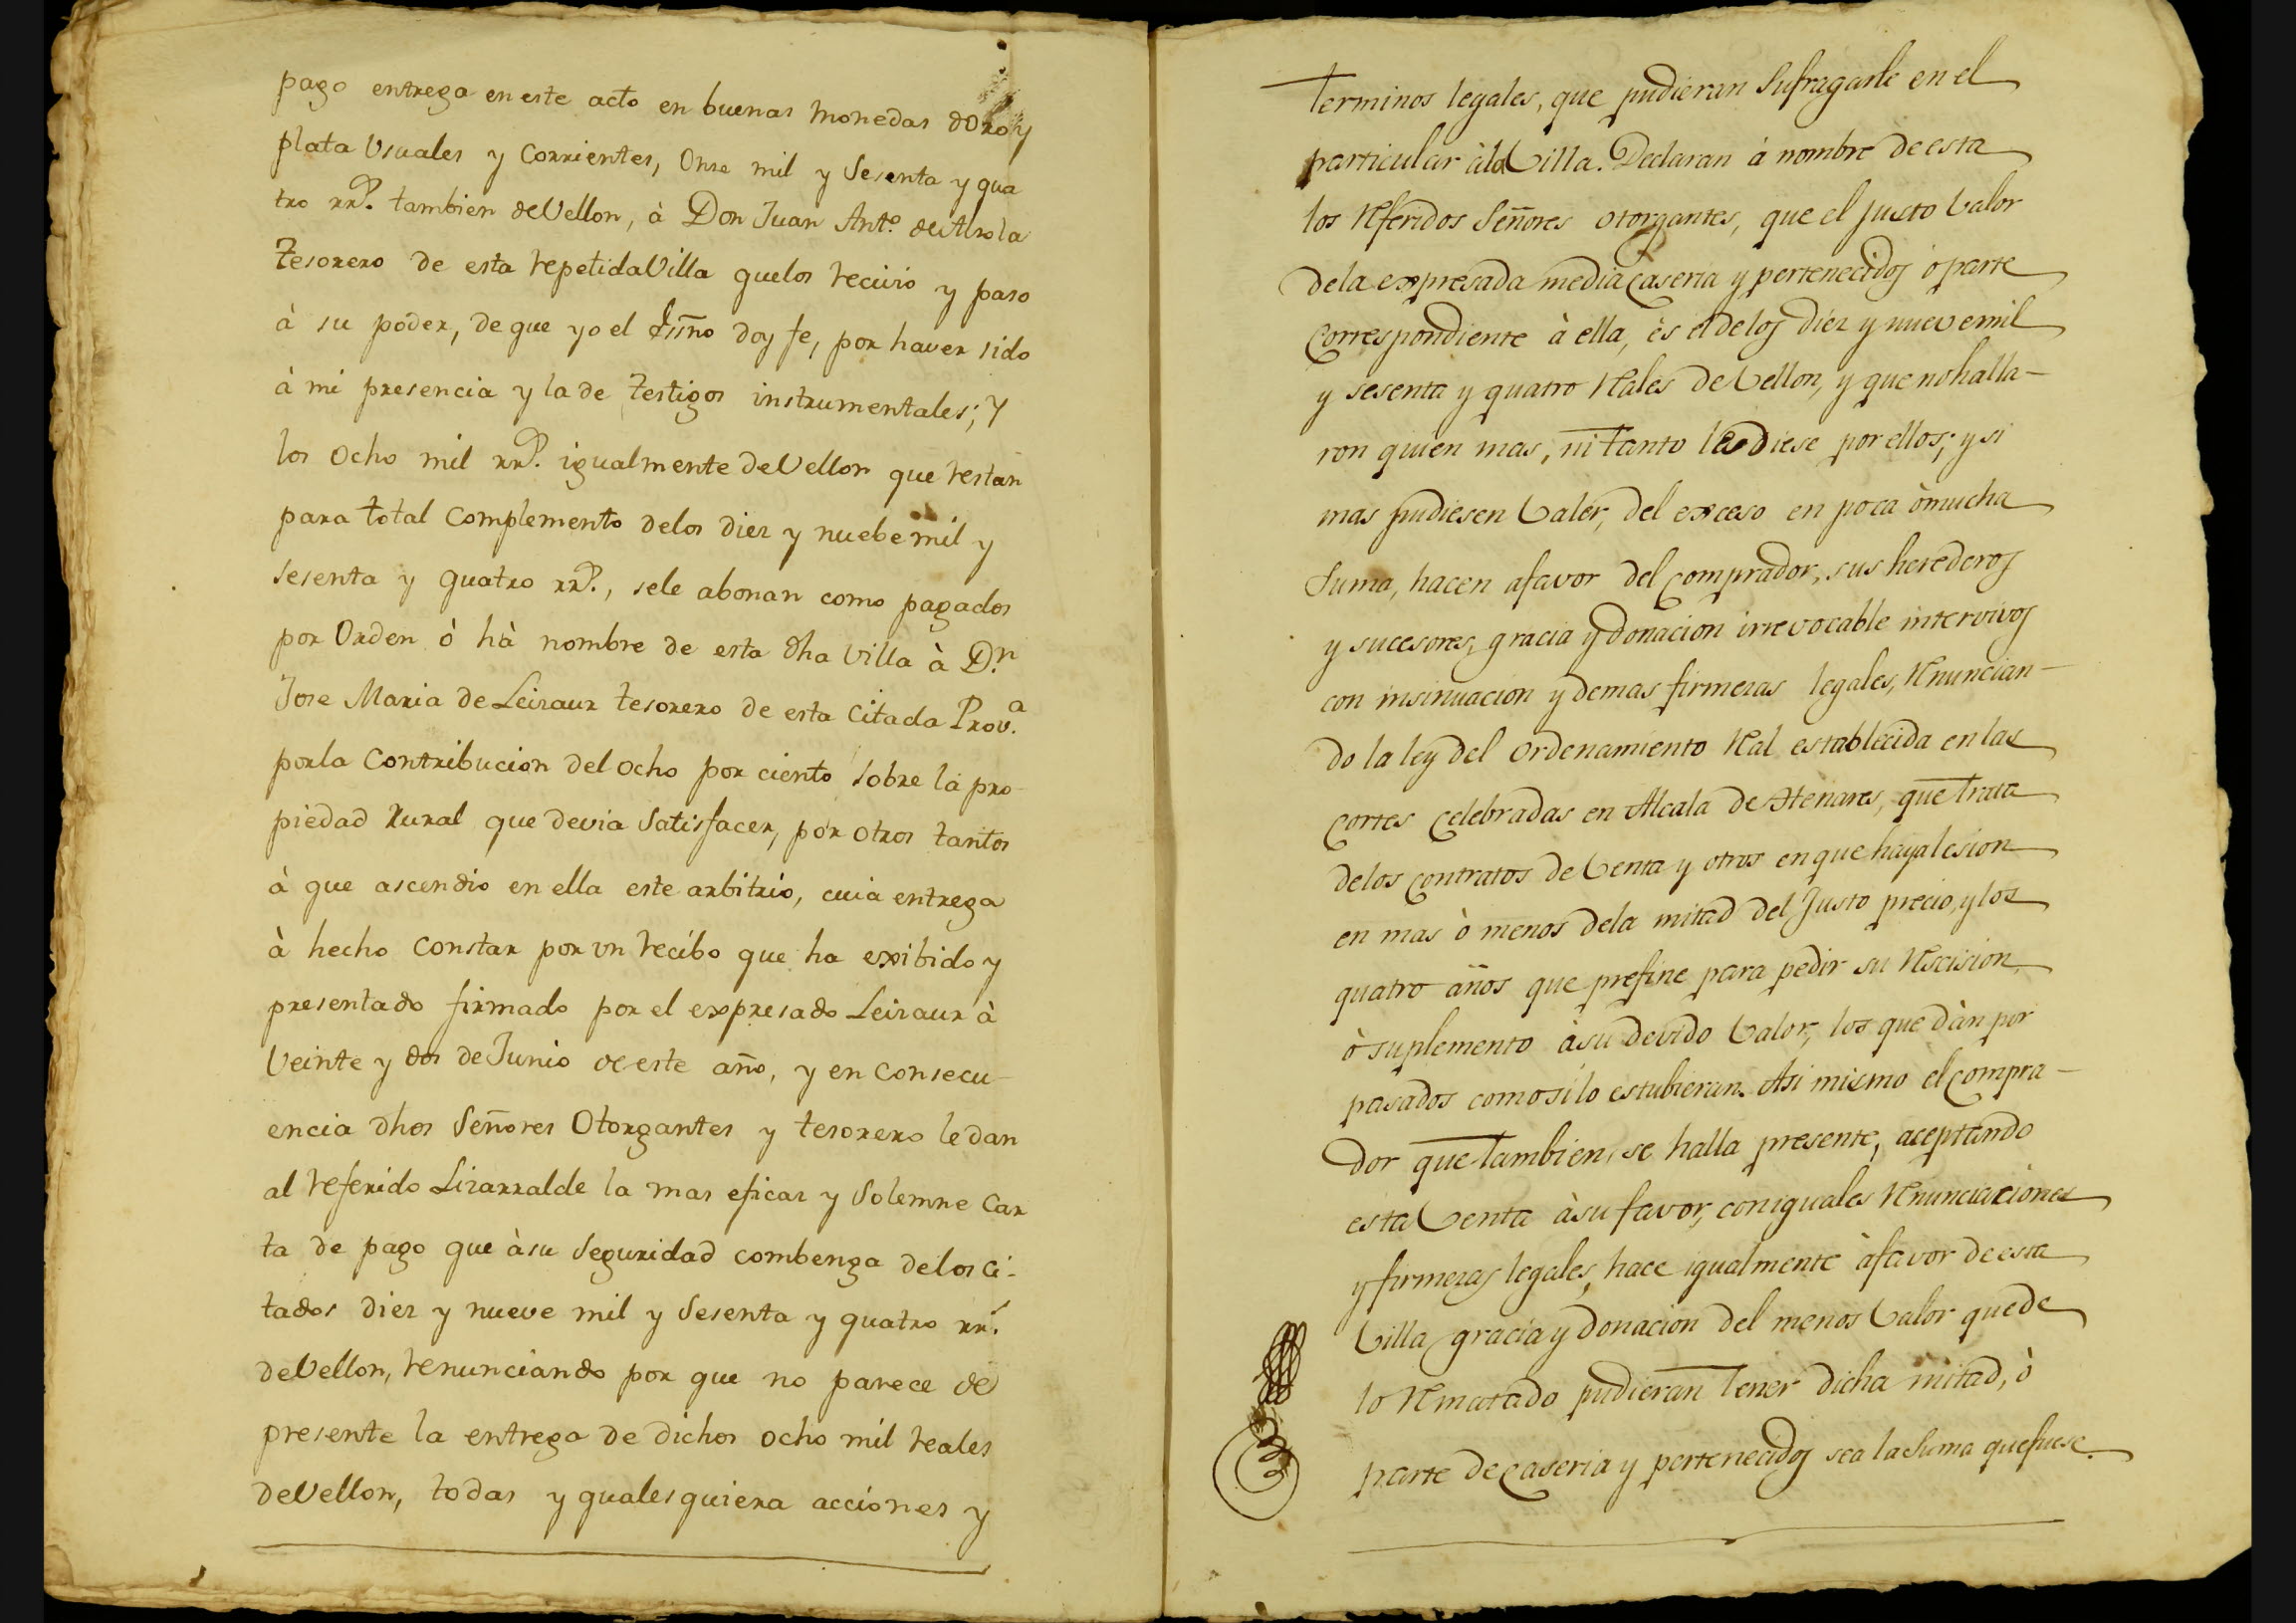 pago entrega en este acto en buenas monedas dOro y
plata Usuales y Corrientes, Onze mil y Sesenta y qua
tro rr.ˢ tambien deVellon, à Don Juan Ant.º de Arrola
Tesorero de esta repetidaVilla quelos recivió y paso
à su poder, de que yo el Essño doy fe, por haver sido
à mi presencia y la de testigos instrumentales; Y
los Ocho mil rr.ˢ igualmente deVellon que restan
para total Complemento delos diez y nuebe mil y
Sesenta y quatro rr.ˢ, sele abonan como pagados
por Orden ò hà nombre de esta dha Villa à D.ⁿ
Jose Maria de Leizaur tesorero de esta Citada Prov.ª
porla Contribucion del ocho por ciento sobre la pro-
piedad Rural que devia Satisfacer, por otros tantos
à que ascendio en ella este arbitrio, cuia entrega
à hecho Constar por un recibo que ha exibido y
presentado firmado por el expresado Leizaur à
Veinte y dos de Junio de este año, y en Consecu-
encia dhos Señores Otorgantes y tesorero le dan
al referido Lizarralde la mas eficaz y Solemne Car
ta de pago que àsu Seguridad combenga delos ci-
tados diez y nueve mil y Sesenta y quatro rr.ˢ
deVellon, renunciando por que no parece de
presente la entrega de dichos ocho mil reales
deVellon, todas y qualesquiera acciones y
Terminos legales, que pudieran Sufragarle en el
particular àla Villa. Declaran à nombre de esta
los Referidos Señores otorgantes, que el justo Valor
dela expresada media Caseria y pertenecidos ò parte
Correspondiente à ella, es el de los diez y nueve mil
y sesenta y quatro Rales de Vellon, y que no halla-
ron quien mas, ni tanto les diese por ellos; y si
mas pudiesen Valer, del exceso en poca òmucha
Suma, hacen afavor del Comprador, sus herederos
y sucesores, gracia y donacion irrevocable intervivos
con insinuacion y demas firmezas legales, Renuncian-
do la ley del ordenamiento Ral establecida en las
Cortes Celebradas en Alcala de Henares, que trata
delos Contratos de Venta y otros en que haya lesion
en mas ò menos dela mitad del Justo precio, y los
quatro años que prefine para pedir su Rescision
ò suplemento àsu devido Valor, los que dàn por
pasados como silo estubieran. Asi mismo el Compra-
dor que tambien se halla presente, aceptando
esta Venta àsu favor, con iguales Renunciaciones
y firmezas legales, hace igualmente àfavor de esta
Villa gracia y donacion del menos Valor que de
lo Rematado pudieran tener dicha mitad, ò
parte de Caseria y pertenecidos sea la Suma que fuese.